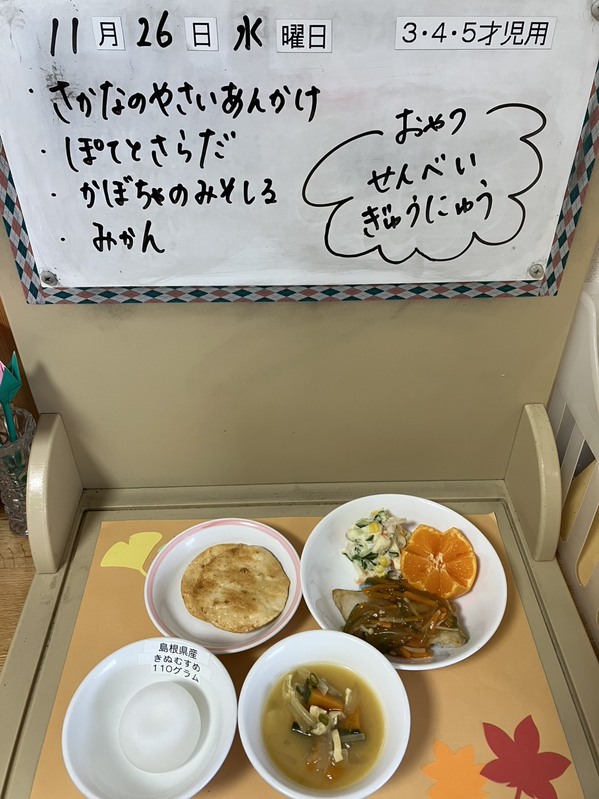 11月26日 水曜日 3・4・5才児用
・さかなのやさいあんかけ
・ぽてとさらだ
・かぼちゃのみそしる
・みかん
おやつ
せんべい
ぎゅうにゅう
島根県産
きぬむすめ
110グラム